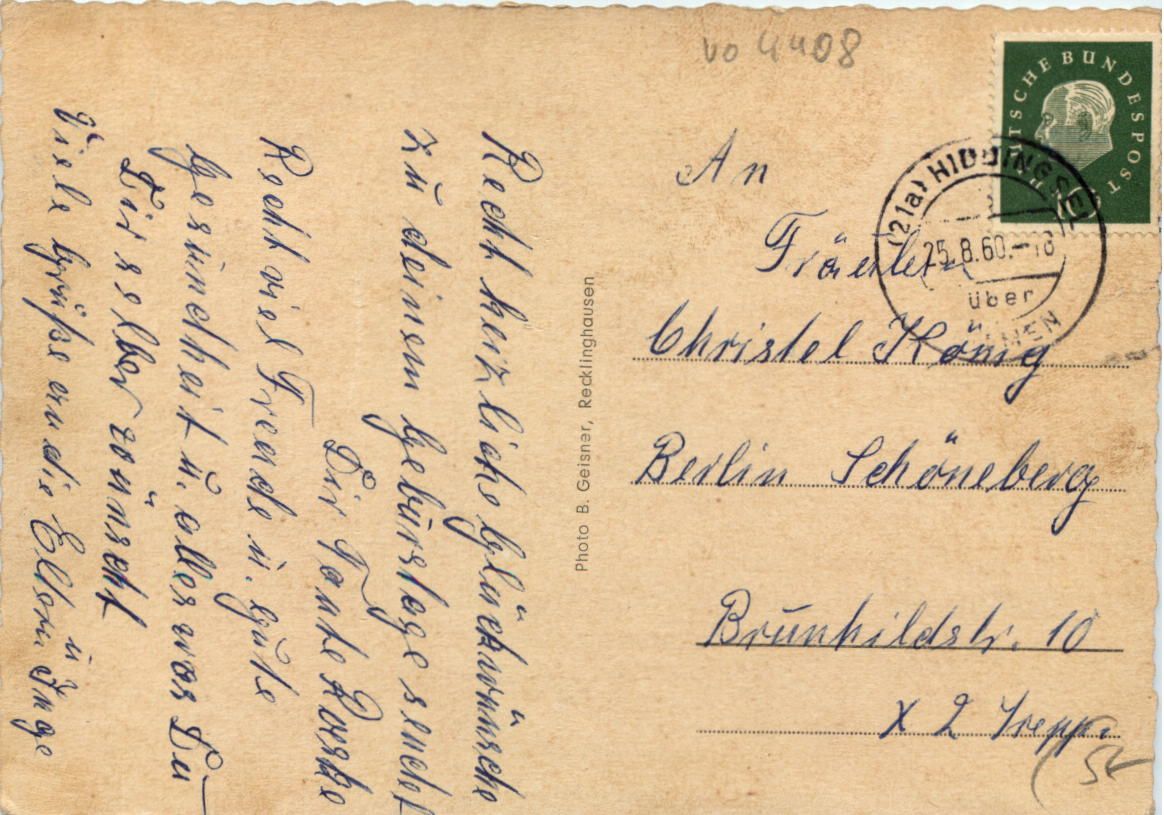 Recht herzliche Glückwünsche
zu deinem Geburstage sendet
Dir Tante
Recht viel Freude u. gute
Gesundheit u. alles was Du
Dir selber wünscht
Viele Grüße an die Eltern u
Inge
Photo B. Geisner, Recklinghausen
vo 4408
An
Fräulein
Christel König
Berlin Schöneberg
Brunhildstr. 10
x 2 Trepp.
DEUTSCHE BUNDESPOST
10
(21a) HIDDINGSEL
25.8.60.-18
über